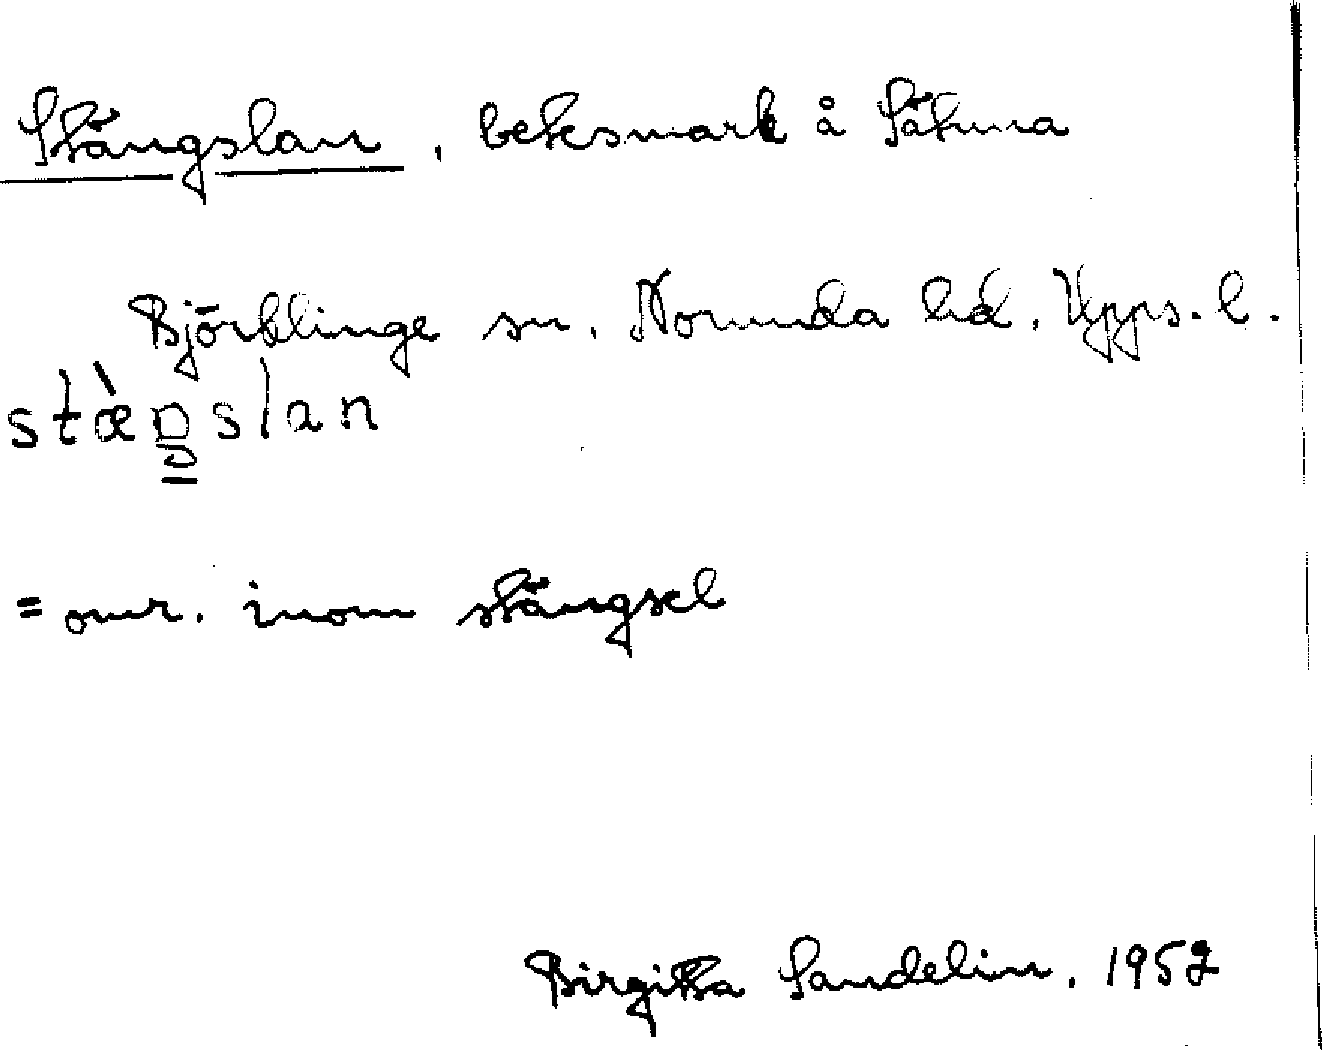 Stängslan, betesmark å Sätuna
Björklinge sn. Norunda hd. Upps. l.
stæ̀ŋslan
= omr. inom stängsel
Birgitta Sandelin. 1952